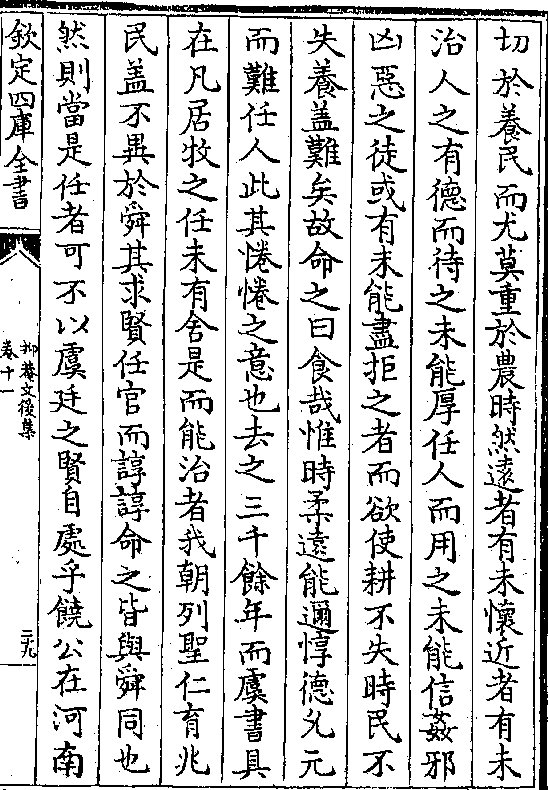 切於養民而尤莫重於農時然遠者有未懷近者有未
治人之有德而待之未能厚任人而用之未能信姦邪
凶惡之徒或有未能盡拒之者而欲使耕不失時民不
失養盖難矣故命之曰食哉惟時柔遠能邇惇德允元
而難任人此其惓惓之意也去之三千餘年而虞書具
在凡居牧之任未有舍是而能治者我朝列聖仁育兆
民盖不異於舜其求賢任官而諄諄命之皆與舜同也
然則當是任者可不以虞廷之賢自處乎饒公在河南
欽定四庫全書
抑菴文後集
卷十一
二九